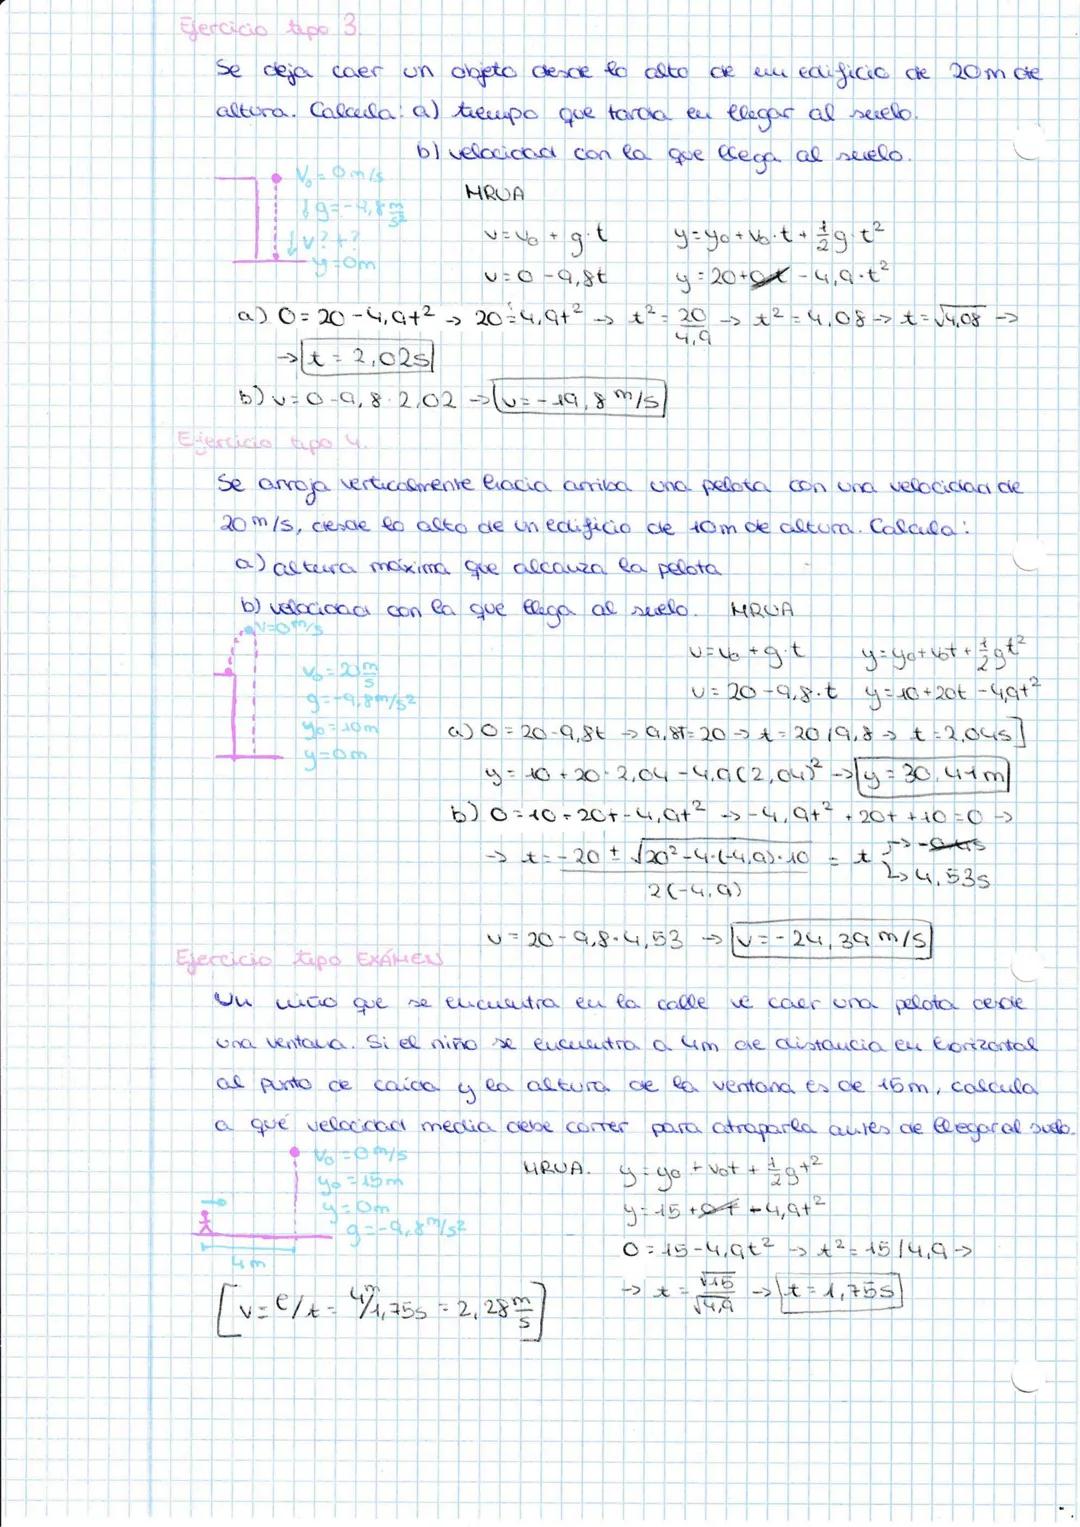 Ejercicio tipo 3.
Se deja caer un objeto desde lo alto de un edificio de 20m de
altura. Calcula: a) tiempo que tarda en llegar al suelo.
b) velocidad con la que llega al suelo.
V₀ = 0 m/s
↓g=-9,8 m/s²
↓v? t?
y=0m
MRUA
v=v₀ + g·t y=y₀+v₀·t+½g·t²
v=0-9,8t y=20+0t-4,9·t²
a) 0=20-4,9t² → 20=4,9t² → t²=20/4,9 → t²=4,08 → t=√4,08 →
→ t = 2,02s
b) v=0-9,8·2,02 → v=-19,8 m/s
Ejercicio tipo 4.
Se arroja verticalmente hacia arriba una pelota con una velocidad de
20 m/s, desde lo alto de un edificio de 10m de altura. Calcula:
a) altura máxima que alcanza la pelota
b) velocidad con la que llega al suelo. MRUA
v=0m/s
V₀=20 m/s
g=-9,8m/s²
y₀=10m
y=0m
v=v₀+g·t y=y₀+v₀t+½gt²
v=20-9,8·t y=10+20t-4,9t²
a) 0=20-9,8t → 9,8t=20 → t=20/9,8 → t=2,04s]
y=10+20·2,04-4,9(2,04)² → y=30,41m
b) 0=10+20t-4,9t² → -4,9t²+20t+10=0 →
→ t=-20±√20²-4·(-4,9)·10 / 2(-4,9) = t → 4,53s
v=20-9,8·4,53 → v=-24,39 m/s
Ejercicio tipo EXÁMEN
Un niño que se encuentra en la calle ve caer una pelota desde
una ventana. Si el niño se encuentra a 4m de distancia en horizontal
al punto de caída y la altura de la ventana es de 15m, calcula
a qué velocidad media debe correr para atraparla antes de llegar al suelo.
V₀=0m/s
y₀=15m
y=0m
g=-9,8m/s²
4m
MRUA. y=y₀+v₀t+½gt²
y=15+0t-4,9t²
0=15-4,9t² → t²=15/4,9 →
→ t=√15/√4,9 → t=1,75s
[v=e/t=4m/1,75s=2,28 m/s]